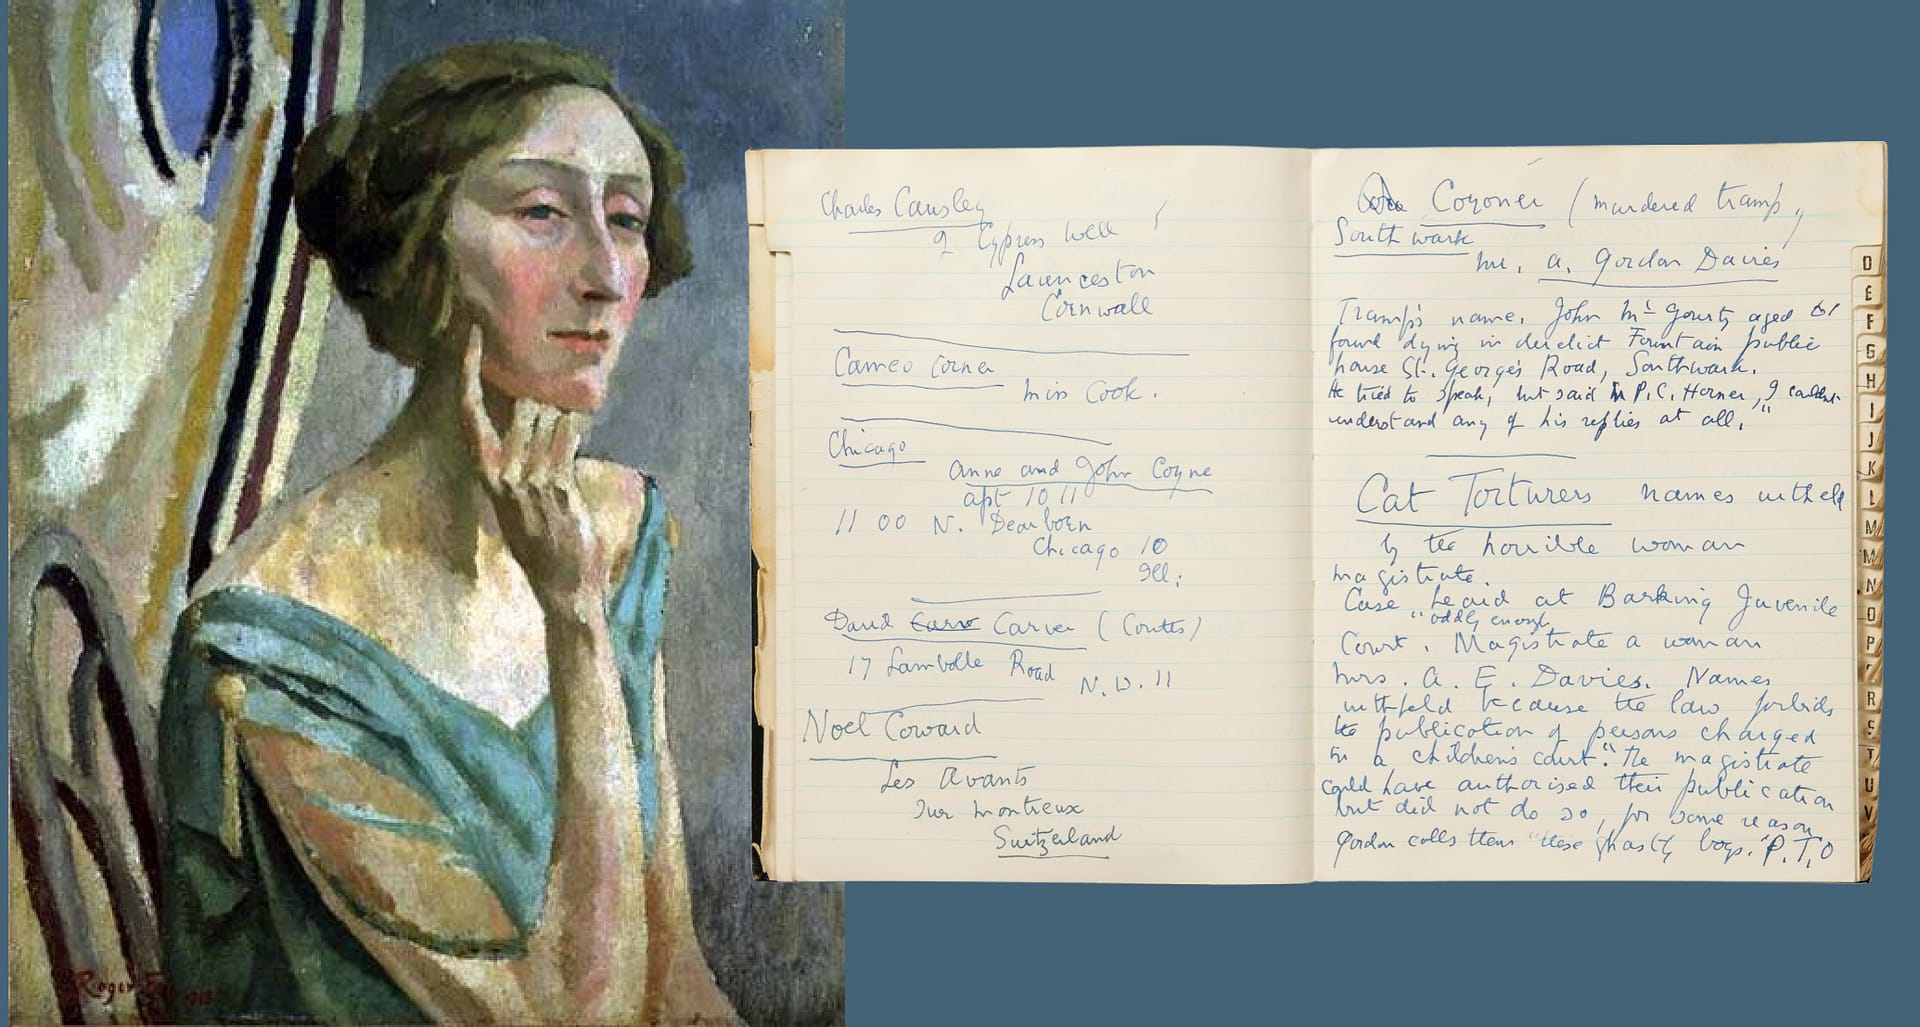 Roger Fry 1918
Charles Causley
2 Cypress Well
Launceston
Cornwall
Cameo Corner
Miss Cook.
Chicago
Anne and John Coyne
apt 1011
1100 N. Dearborn
Chicago 10
Ill:
David Carver (Coutts)
17 Lambolle Road
N.W.11
Noel Coward
Les Avants
Sur Montreux
Switzerland
Coroner (murdered tramp,
Southwark
Mr. A. Gordon Davies
Tramp's name, John McGourty aged 61
found dying in derelict Fountain public
house St. George's Road, Southwark.
He tried to speak, but said P.C. Horner, "I couldn't
understand any of his replies at all."
Cat Torturers names withheld
by the horrible woman
magistrate.
Case heard at Barking Juvenile
"oddly enough"
Court. Magistrate a woman
Mrs. A. E. Davies. Names
withheld because the law forbids
the publication of persons charged
in a children's court." The magistrate
could have authorised their publication
but did not do so, for some reason
Gordon calls them "these ghastly boys." P.T.O
D
E
F
G
H
I
J
K
L
M
M
N
O
P
R
S
T
U
V